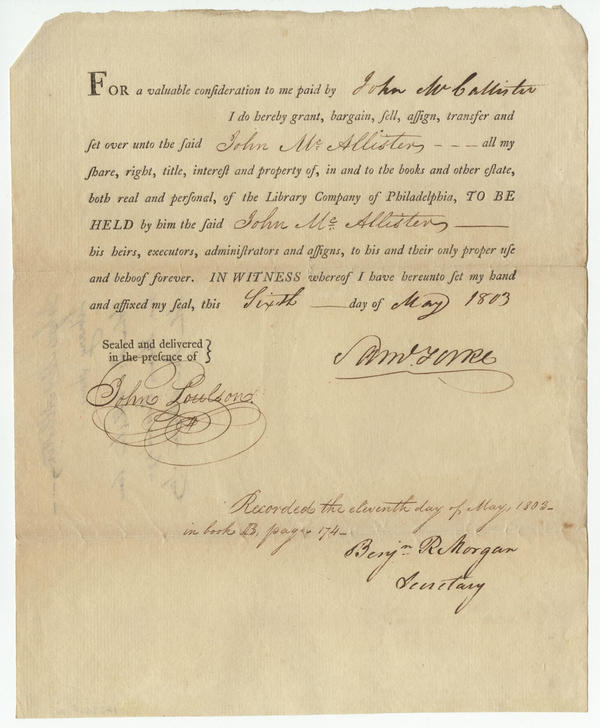 FOR a valuable conſideration to me paid by John McCallister
I do hereby grant, bargain, ſell, aſſign, transfer and
ſet over unto the ſaid John Mc Allister, – – – all my
ſhare, right, title, intereſt and property of, in and to the books and other eſtate,
both real and perſonal, of the Library Company of Philadelphia, TO BE
HELD by him the ſaid John Mc Allister,
his heirs, executors, adminiſtrators and aſſigns, to his and their only proper uſe
and behoof forever. IN WITNESS whereof I have hereunto ſet my hand
and affixed my ſeal, this Sixth day of May 1803
Sealed and delivered
in the preſence of }
Samd.
John
Recorded the eleventh day of May, 1803–
in book B, page 174–
Benjn R Morgan
Secretary